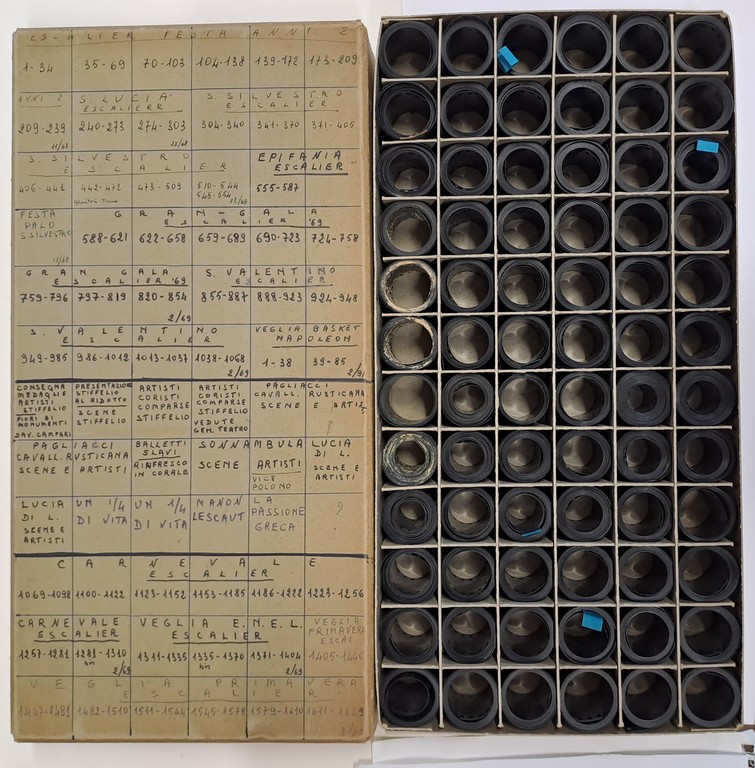 ESCALIER FESTA ANNI 2
1-34 35-69 70-103 104-138 139-172 173-209
ANNI 2 S. LUCIA S. SILVESTRO
ESCALIER ESCALIER
209-239 240-273 274-303 304-340 341-370 371-405
11/68 12/68
S. SILVESTRO EPIFANIA
ESCALIER ESCALIER
406-441 442-472 473-509 510-544 555-587
12/68
FESTA GRAN-GALA
PALO ESCALIER '69
S. SILVESTRO 588-621 622-658 659-689 690-723 724-758
12/68
GRAN GALA S. VALENTINO
ESCALIER '69 ESCALIER
759-796 797-819 820-854 855-887 888-923 924-948
2/69
S. VALENTINO VEGLIA BASKET
ESCALIER NAPOLEON
949-985 986-1012 1013-1037 1038-1068 1-38 39-85
2/69
CONSEGNA PRESENTAZIONE ARTISTI ARTISTI PAGLIACCI
MEDAGLIE STIFFELIO CORISTI CORISTI CAVALL. RUSTICANA
ARTISTI AL RIDOTTO COMPARSE COMPARSE SCENE E ARTIS
STIFFELIO SCENE STIFFELIO STIFFELIO
FIORI DI STIFFELIO VEDUTE
MONUMENTI GEN. TEATRO
DAV. CAMPARI
PAGLIACCI BALLETTI SONNAMBULA LUCIA
CAVALL. RUSTICANA SLAVI DI L.
SCENE E ARTISTI RINFRESCO SCENE ARTISTI SCENE E
IN CORALE VICE ARTISTI
POLONO
LUCIA UN 1/4 UN 1/4 MANON LA ?
DI L. DI VITA DI VITA LESCAUT PASSIONE
SCENE E GRECA
ARTISTI
CARNEVALE
ESCALIER
1069-1098 1100-1122 1123-1152 1153-1185 1186-1222 1223-1256
CARNEVALE VEGLIA E.N.E.L. VEGLIA
ESCALIER ESCALIER PRIMAVERA
ESCAL
1257-1281 1281-1310 1311-1335 1335-1370 1371-1404
bis bis
2/69 2/69
VEGLIA PRIMAVERA
ESCALIER
1447-1481 1482-1510 1511-1544 1545-1578 1579-1610